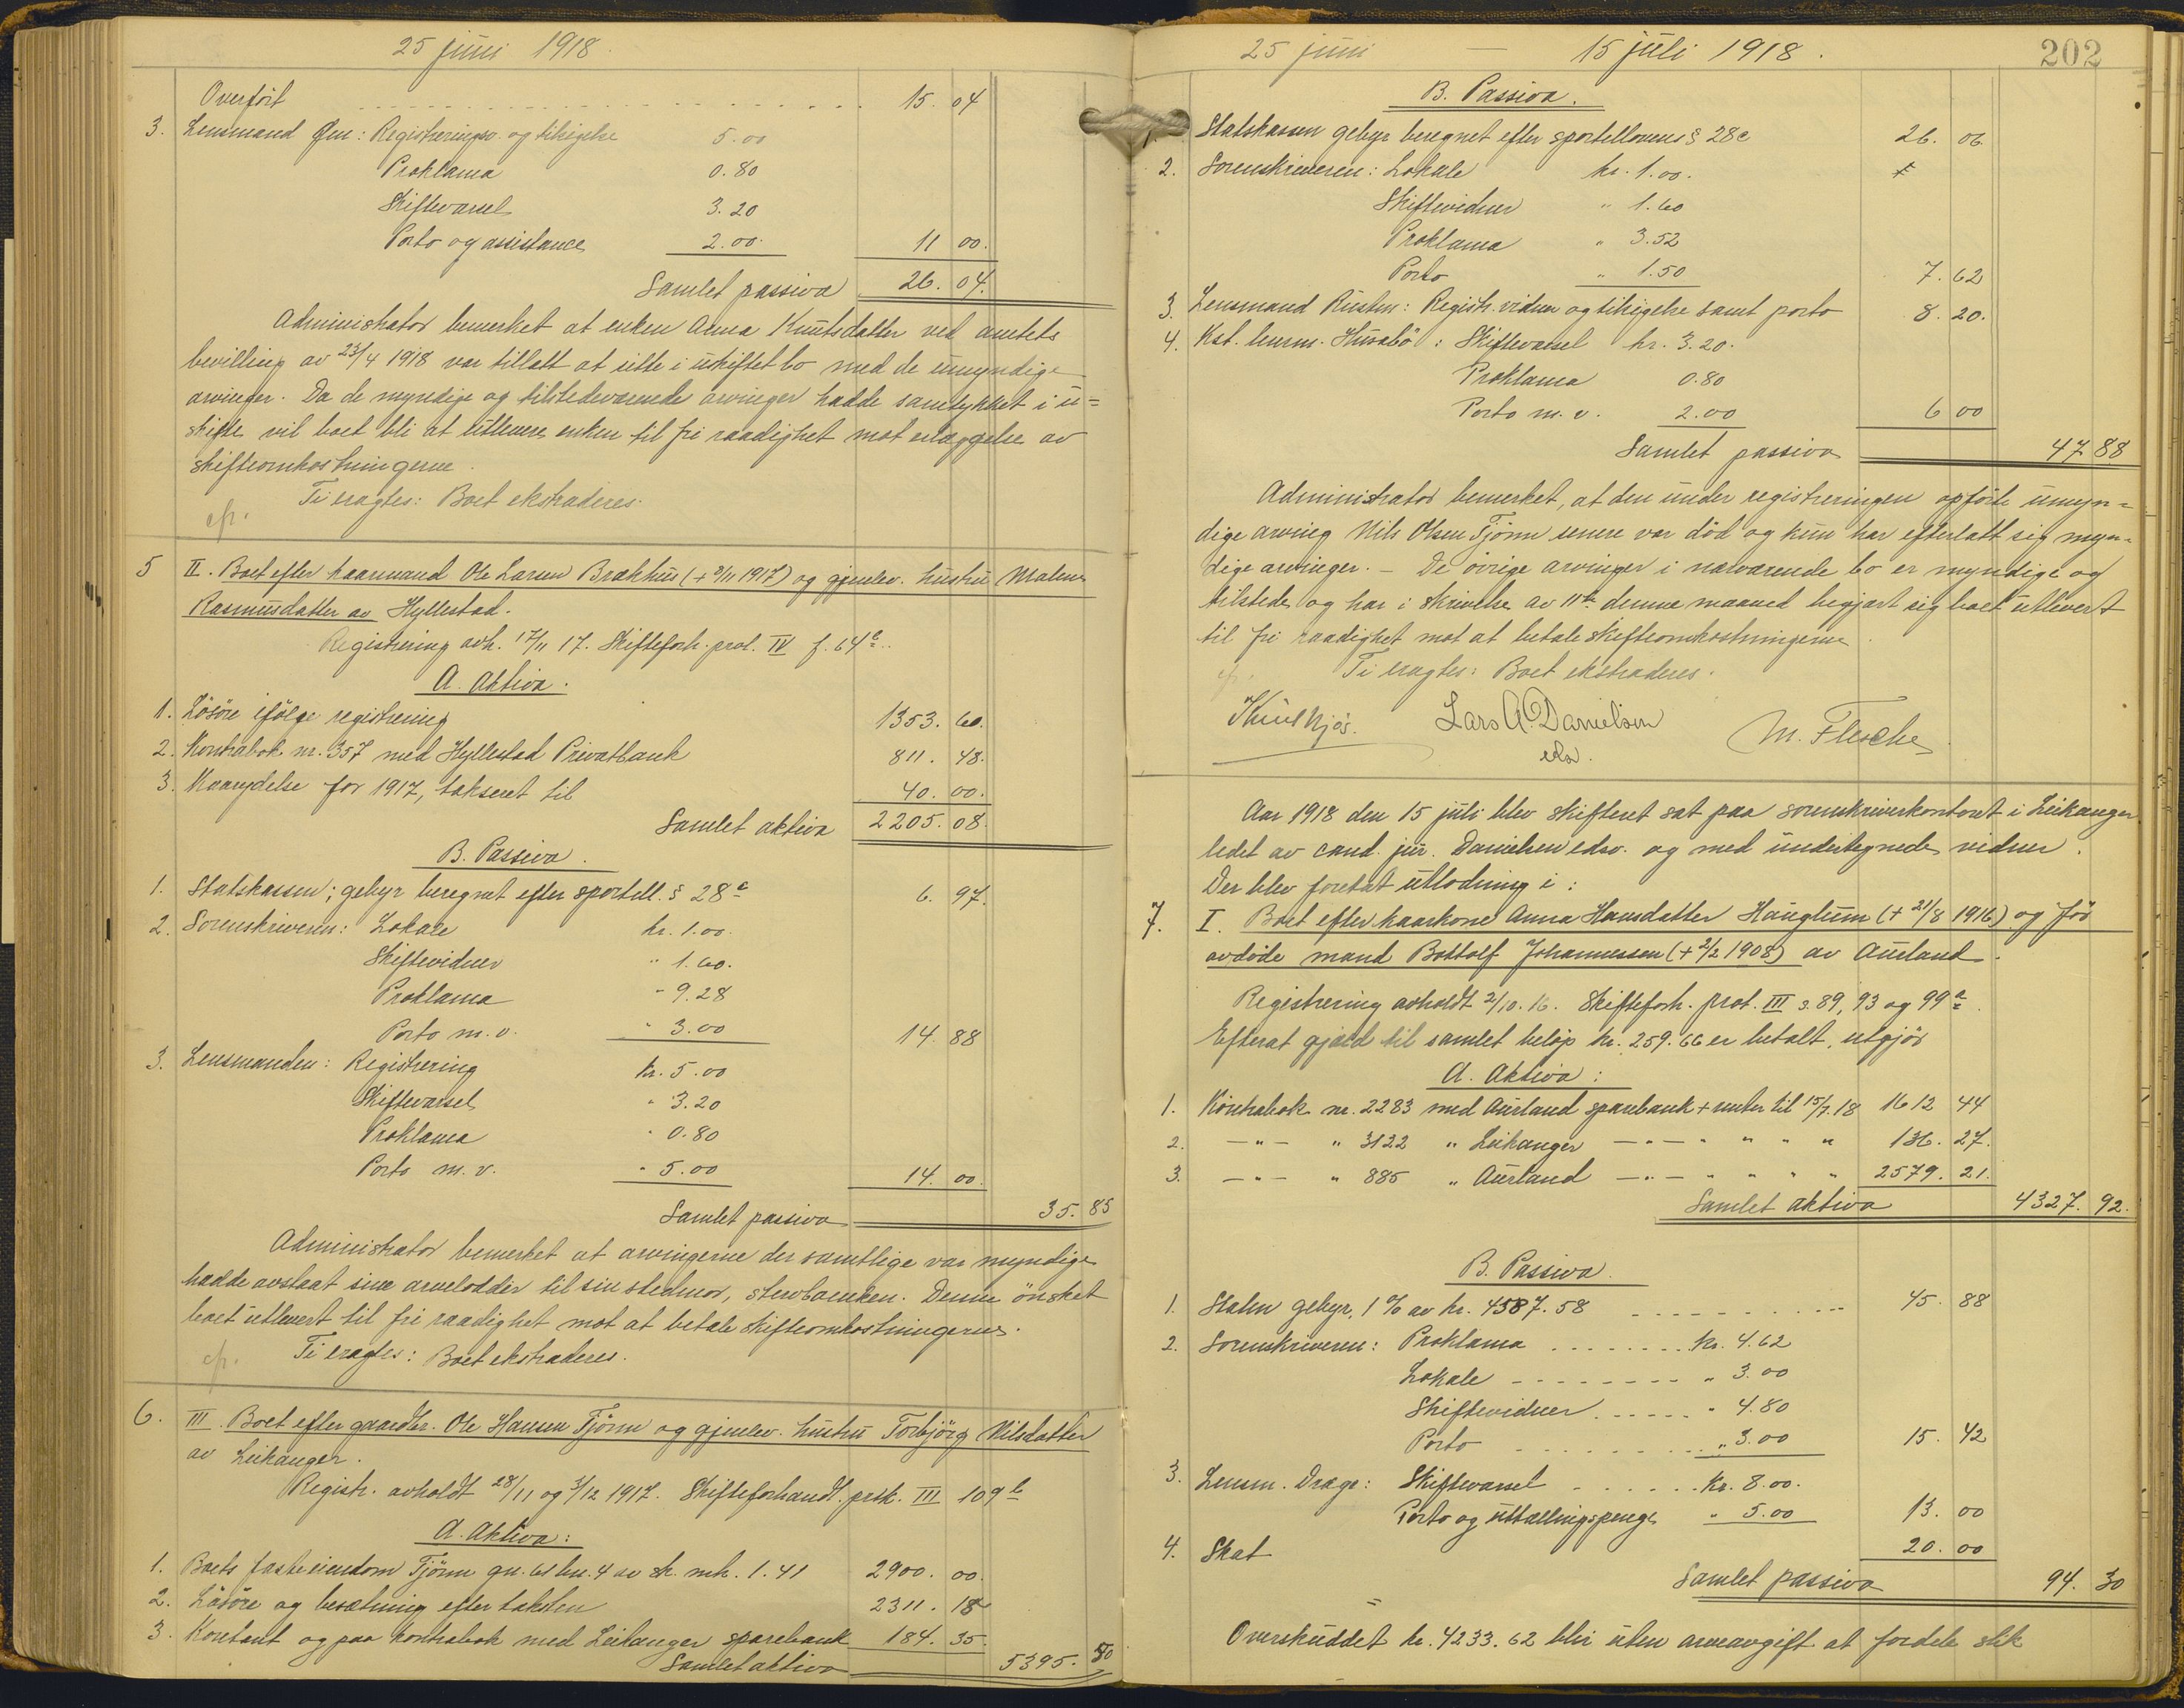 25 juni 1918.
Overført 15. 04
3. Lensmand Øen: Registrerings. og tilsigelse 5.00
Proklama 0.80
Skiftevarsel 3.20
Porto og assistance 2.00. 11 00.
Samlet passiva 26. 04.
Administrator bemerket at enken Anna Knutsdatter ved amtets
bevilling av 23/4 1918 var tillatt at sitte i uskiftet bo med de umyndige
arvinger. Da de myndige og tilstedeværende arvinger hadde samtykket i u=
skifte vil boet bli at utlevere enken til fri raadighet mot erlæggelse av
skifteomkostningerne.
Ti eragtes: Boet ekstraderes.
cfr.
5 II. Boet efter kaarmand Ole Larsen Brækhus (+ 3/11 1917) og gjenlev. hustru Malene
Rasmusdatter av Hyllestad.
Registrering avh. 17/11 17. Skifteforh. prot. IV f. 64a.
A. Aktiva.
1. Løsøre ifølge registrering 1353. 60.
2. Kontrabok nr. 357 med Hyllestad Privatbank 811. 48.
3. Kaarydelse for 1917, takseret til 40. 00.
Samlet aktiva 2205. 08.
B. Passiva.
1. Statskassen; gebyr beregnet efter sportell. § 28a 6. 97.
2. Sorenskriveren: Lokale kr. 1.00.
Skiftevidner " 1.60.
Proklama " 9.28
Porto m.v. " 3.00 14. 88
3. Lensmanden: Registrering kr. 5.00
Skiftevarsel " 3.20
Proklama " 0.80
Porto m.v. " 5.00 14. 00.
Samlet passiva 35. 85
Administrator bemerket at arvingerne der samtlige var myndige
hadde avstaat sine arvelodder til sin stedmor, stervboenken. Denne ønsket
boet utlevert til fri raadighet mot at betale skifteomkostningerne.
Ti eragtes: Boet ekstraderes.
cfr.
6. III. Boet efter gaardbr. Ole Hansen Tjønn og gjenlev. hustru Torbjørg Nilsdatter
av Leikanger.
Registr. avholdt 28/11 og 3/12 1917. Skifteforhandl. prtk. III 109b
A. Aktiva:
1. Boets faste eiendom Tjønn gn. 61 bn. 4 av sk. mrk. 1.41 2900. 00.
2. Løsøre og besætning efter taksten 2311. 15
3. Kontant og paa kontrabok med Leikanger sparebank 184. 35.
Samlet aktiva 5395. 50
25 juni — 15 juli 1918. 202
B. Passiva.
1. Statskassen gebyr beregnet efter sportellovens § 28c 26. 06.
2. Sorenskriveren: Lokale kr. 1.00.
Skiftevidner " 1.60
Proklama " 3.52
Porto " 1.50 7. 62
3. Lensmand Rusten: Registr. vidner og tilsigelse samt porto 8. 20.
4. Kst. lensm. Husabø: Skiftevarsel kr. 3.20.
Proklama 0.80
Porto m.v. 2.00 6 00
Samlet passiva 47 88
Administrator bemerket, at den under registreringen opførte umyn=
dige arving Nils Olsen Tjønn senere var død og kun har efterlatt sig myn-
dige arvinger. – De øvrige arvinger i nærværende bo er myndige og
tilstede og har i skrivelse av 11te denne maaned begjært sig boet utlevert
til fri raadighet mot at betale skifteomkostningerne.
Ti eragtes: Boet ekstraderes.
cfr.
Knut Njøs. Lars A. Danielsen M. Flesche
eds.
Aar 1918 den 15 juli blev skifteret sat paa sorenskriverkontoret i Leikanger
ledet av cand. jur. Danielsen edsv. og med undertegnede vidner.
Der blev foretat utlodning i:
7. I. Boet efter kaarkone Anna Hansdatter Hauglum (+ 21/8 1916) og før
avdøde mand Bottolf Johannessen (+ 2/2 1908) av Aurland.
Registrering avholdt 2/10.16. Skifteforh. prot. III s. 89, 93 og 99a.
Efterat gjæld til samlet beløp kr. 259.66 er betalt, utgjør
A. Aktiva:
1. Kontrabok nr. 2283 med Aurland sparebank + renter til 15/7.18 1612 44
2. —"— " 3122 " Leikanger —"— " " " " 136. 27.
3. —"— " 885 " Aurland —"— " " " " 2579. 21.
Samlet aktiva 4327. 92.
B. Passiva.
1. Staten gebyr, 1 % av kr. 4587.58 45. 88
2. Sorenskriveren: Proklama kr. 4.62
Lokale " 3.00
Skiftevidner " 4.80
Porto " 3.00 15. 42
3. Lensm. Drage: Skiftevarsel kr. 8.00.
Porto og uttællingspenge " 5.00 13. 00
4. Skat 20. 00
Samlet passiva 94. 30
Overskuddet kr. 4233.62 blir uten arveavgift at fordele slik